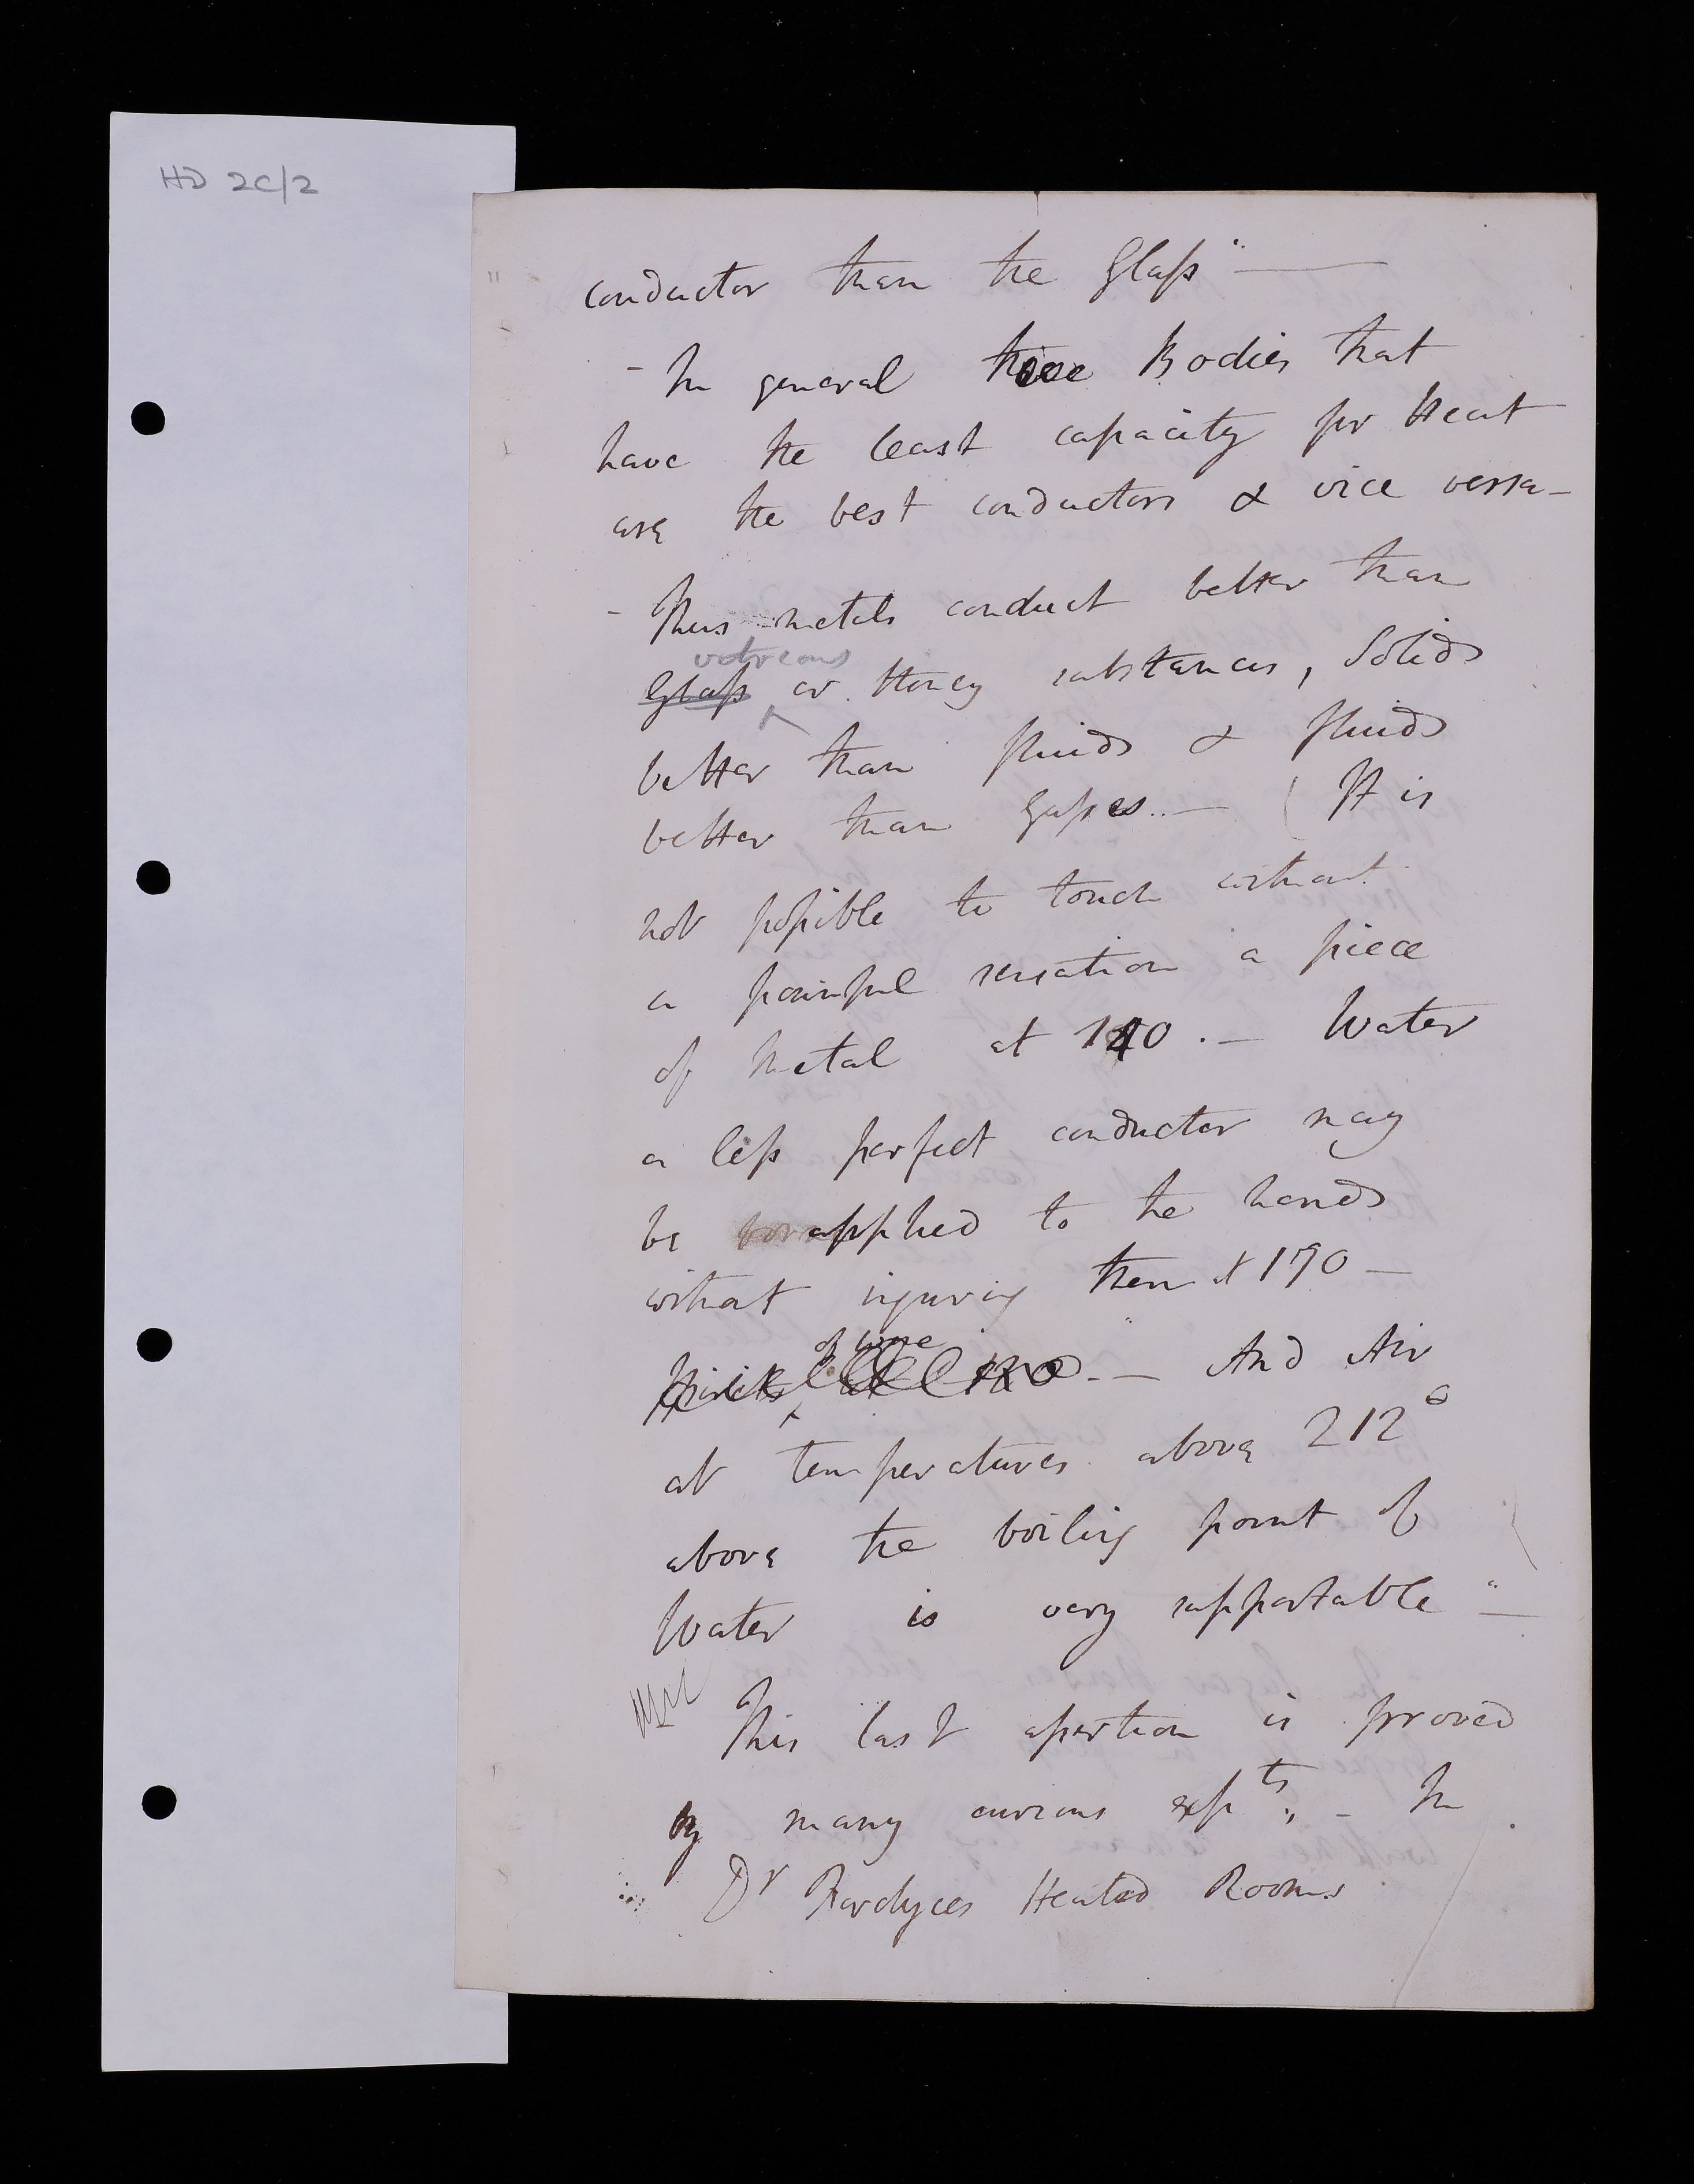 HD 2C/2
conductor than the Glass" —
- In general those Bodies that
have the least capacity for Heat
are the best conductors & vice versa -
- Thus metals conduct better than
vitreous
Glass or Stoney substances, Solids
better than fluids & fluids
better than Gasses. — ( It is
not possible to touch without
a painful sensation a piece
of Metal at 120 . — Water
a less perfect conductor may
be applied to the hands
without injuring them at 170 —
of wine
Spirits at 130 . — And Air
at temperatures above 212°
above the boiling point of
Water is very supportable " —
This last assertion is proved
by many curious expts. - In
Dr Fordyces Heated Rooms